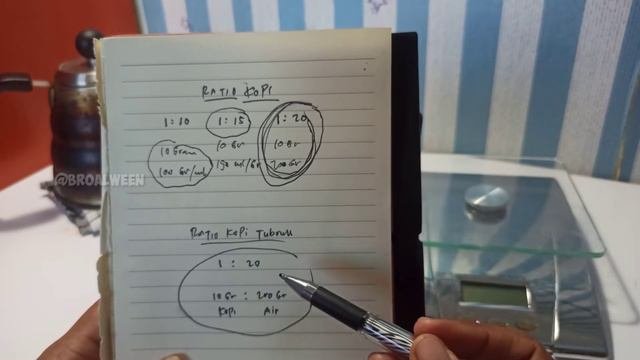 RATIO KOPI
1 : 10 1 : 15 1 : 20
10 Gram 10 Gr 10 Gr
100 Gr/ml 150 ml/Gr 200 Gr
@BROALWEEN
RATIO KOPI TUBRUK
1 : 20
10 Gr : 200 Gr
Kopi Air